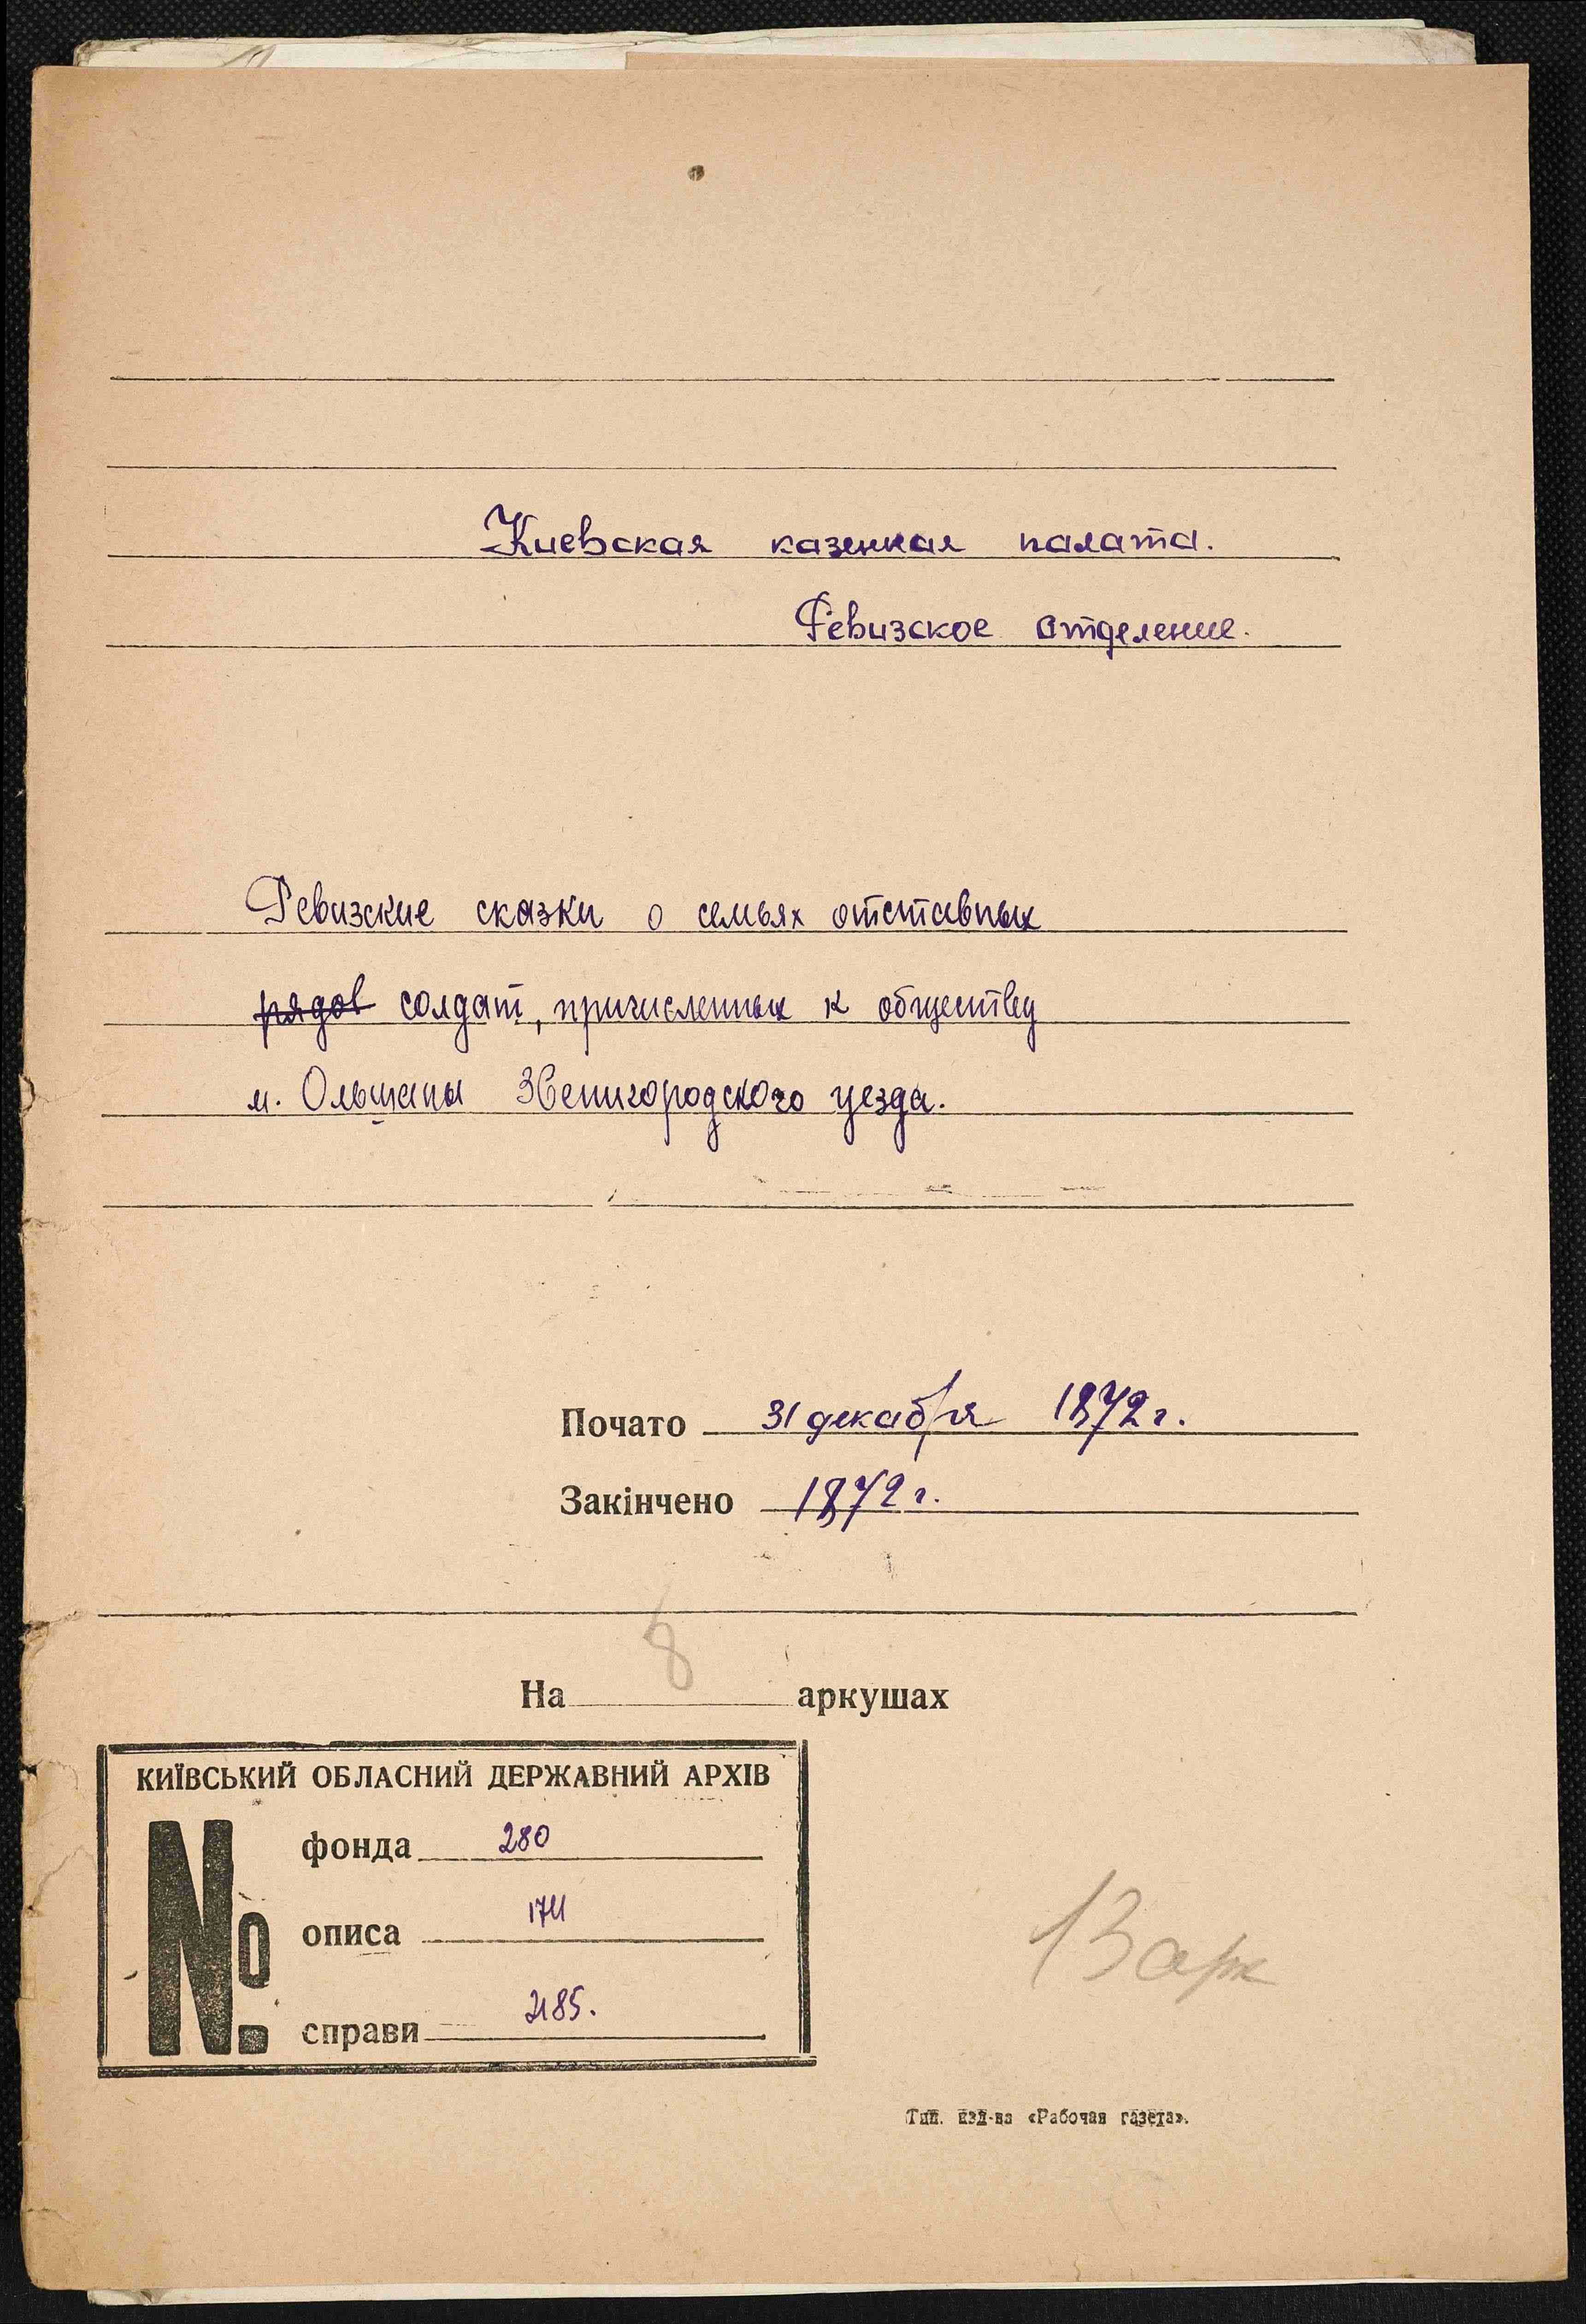 Киевская казенная палата.
Ревизское отделение.
Ревизские сказки о семьях отставных
рядов солдат, причисленных к обществу
м. Ольшаны Звенигородского уезда.
Почато 31 декабря 1872 г.
Закінчено 1872 г.
На 8 аркушах
КИЇВСЬКИЙ ОБЛАСНИЙ ДЕРЖАВНИЙ АРХІВ
№
фонда 280
описа 174
справи 2185.
13 арк
Тип. изд-ва «Рабочая газета».